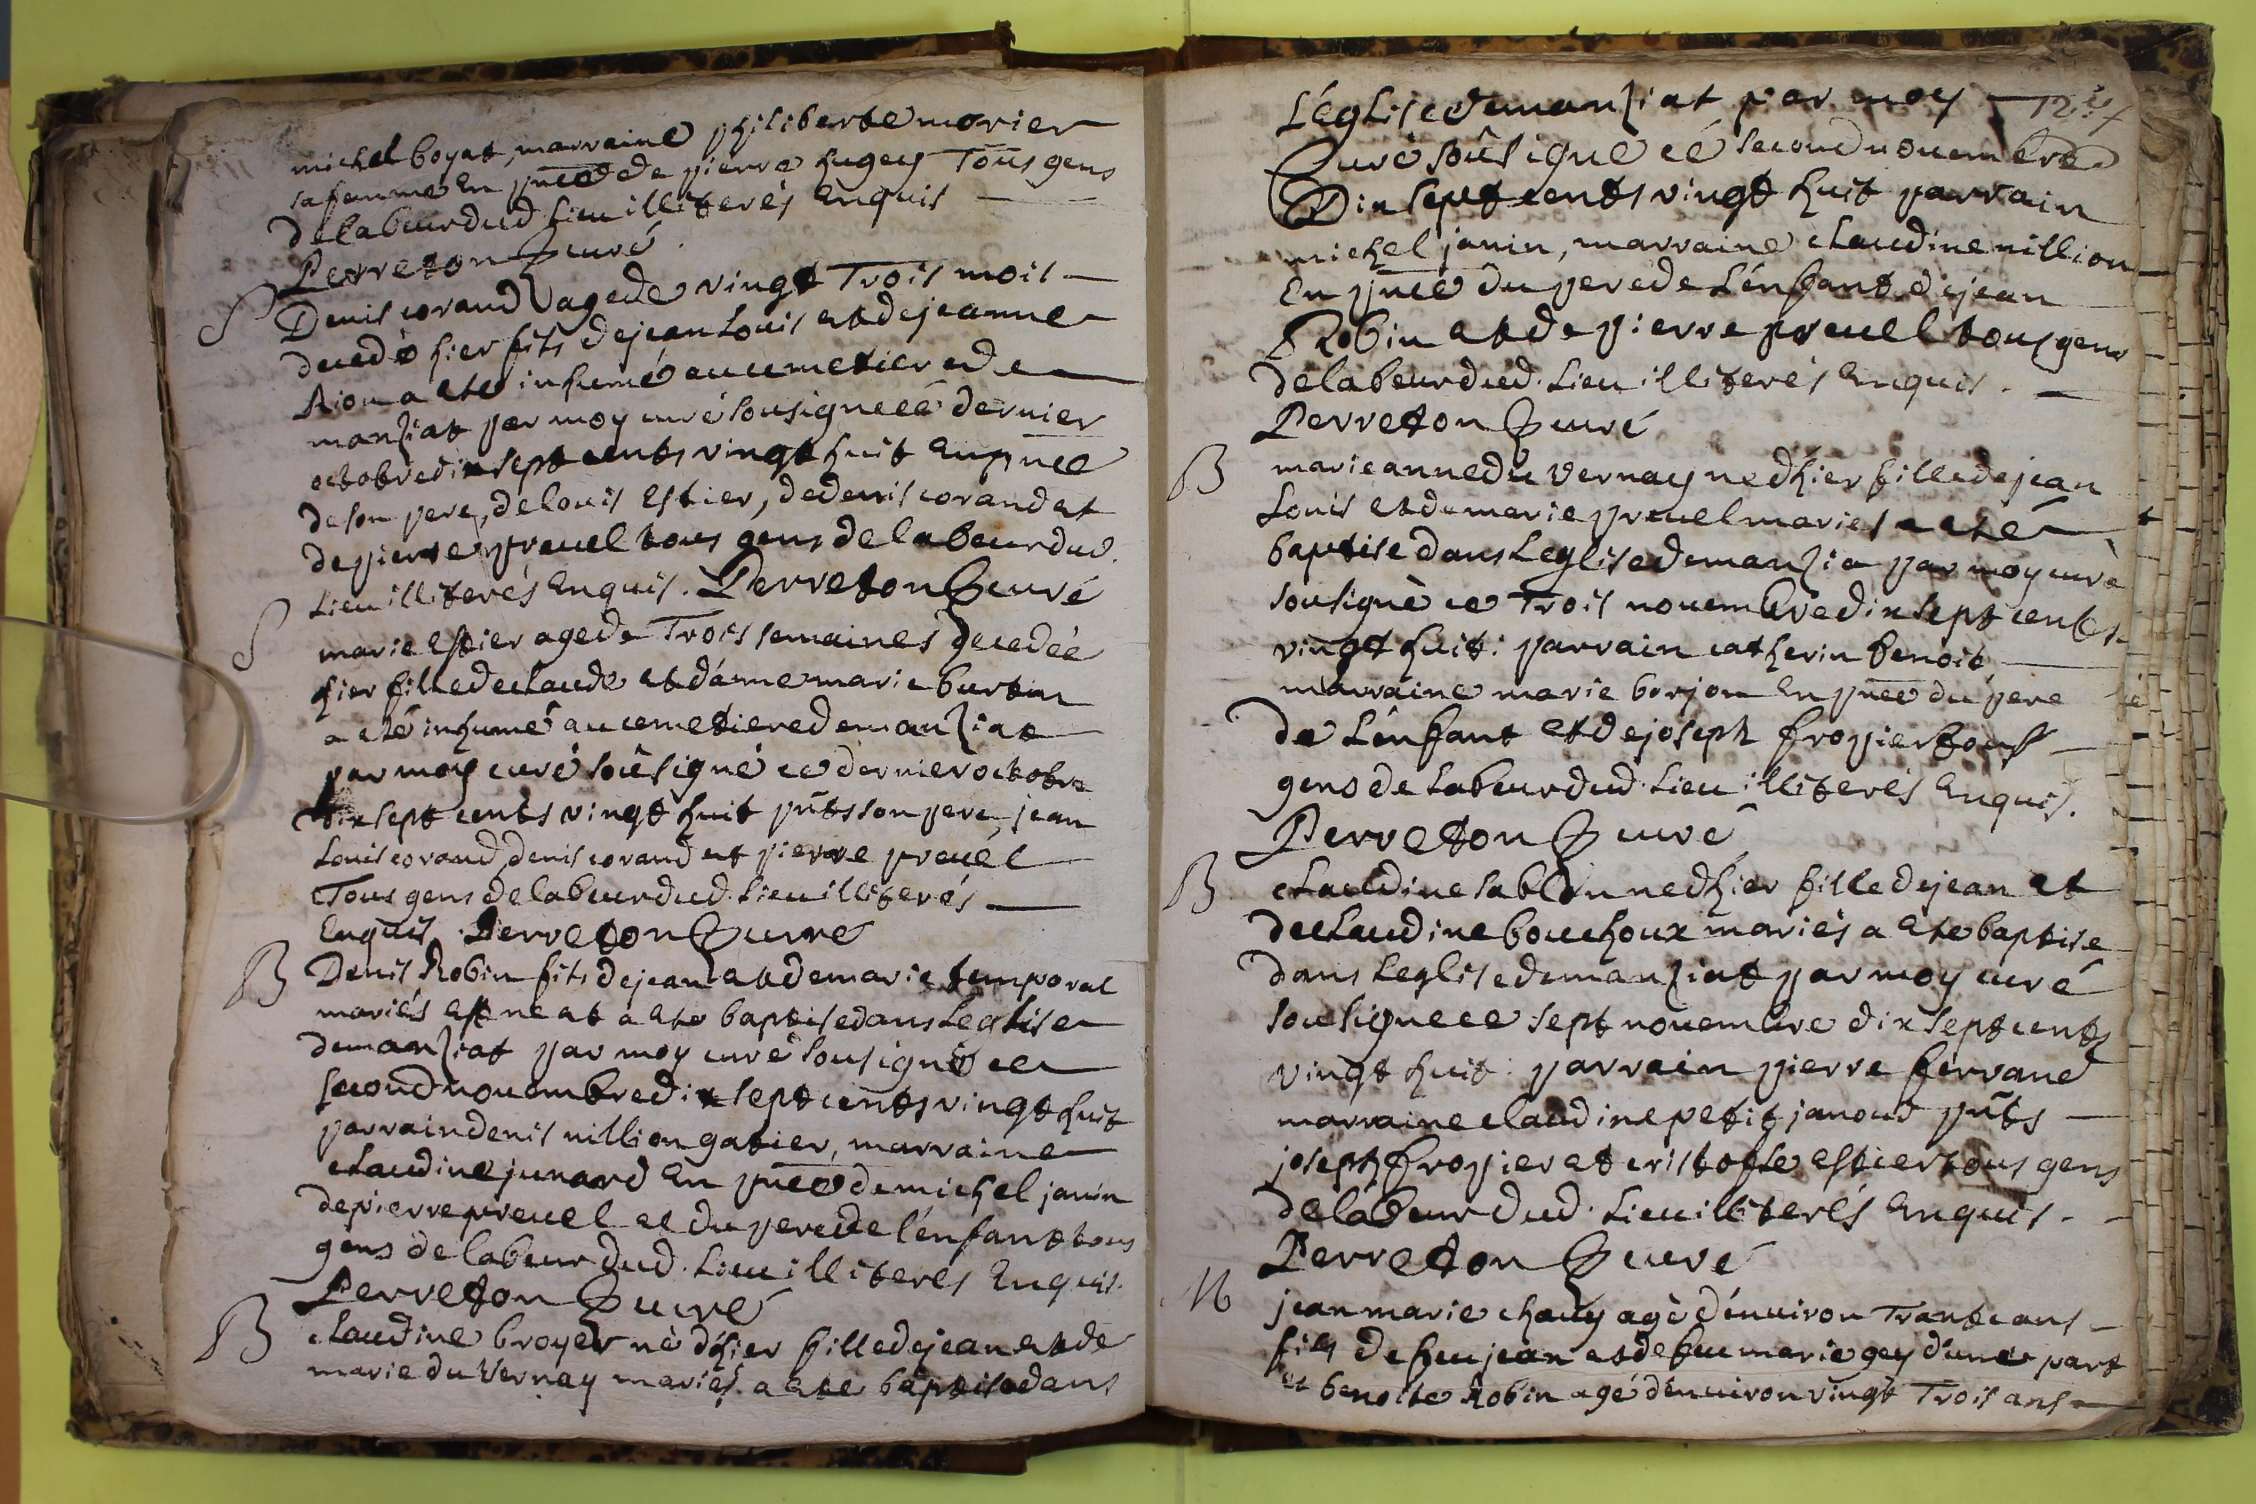 michel boyat, marraine philiberte morier
sa femme en pnce de pierre hugey Tous gens
de labeur dud. Lieu illiterés Enquis
Perreton Curé
S Denis corand agé de vingt Trois mois
decedé hier fils de jean Louis et de jeanne
Rion a eté inhumé au cemetiere de
manziat par moy curé sousigné cé dernier
octobre dix sept cents vingt huit en pnce
de son pere, de Louis Estier, de denis corand et
de pierre preuel tous gens de labeur dud.
Lieu illiterés Enquis. Perreton Curé
S marie estier agé de Trois semaines decedée
hier fille de claude et d'anne marie burtin
a eté inhumé au cemetiere de manziat
par moy curé soûsigné ce dernier octobre
dix sept cents vingt huit pnts son pere, jean
Louis corand, denis corand et pierre preuel
Tous gens de labeur dud. Lieu illiterés
Enquis. Perreton Curé
B Denis Robin fils de jean et de marie temporal
mariés est ne et a ete baptise dans Leglise
de manziat par moy curé sousigné ce
second nouembre dix sept cents vingt huit
parrain denis nillion gatier, marraine
claudine junard en pnce de michel janin
de pierre preuel et du pere de l'énfant tous
gens de labeur dud. Lieu illiterés Enquis.
Perreton Curé
B claudine broyer né d'hier fille de jean et de
marie du Vernay mariés a ete baptisé dans
L'églisse de manziat par moy 124
Curé soûsigné cé second nouembre
Dix sept cents vingt huit parrain
michel janin, marraine claudine nillion
En pnce du pere de L'énfant de jean
Robin et de pierre preuel tous gens
de labeur dud. Lieu illiterés Enquis.
Perreton Curé
B marie anne du Vernay ne d'hier fille de jean
Louis et de marie preuel mariés a eté
baptise dans Leglise de manzia par moy curé
sousigné ce Trois nouembre dix sept cents
vingt huit: parrain catherin benoit
marraine marie borjon en pnce du pere
de L'énfant et de joseph fropier tous
gens de Labeur dud. Lieu illiterés Enquis.
Perreton Curé
B claudine sablon ne d'hier fille de jean et
de claudine bouchoux mariés a ete baptise
dans Leglise de manziat par moy curé
sousigne ce sept nouembre dix sept cents
vingt huit: parrain pierre ferrand
marraine claudine petit janoud pnts
joseph fropier et cristofle estier tous gens
de lábeur dud. Lieu illiterés Enquis.
Perreton Curé
M jean marie chauy agé d'énuiron Trante ans
fils de feu jean et de feu marie gey d'une part
et benoite Robin agé d'énuiron vingt Trois ans